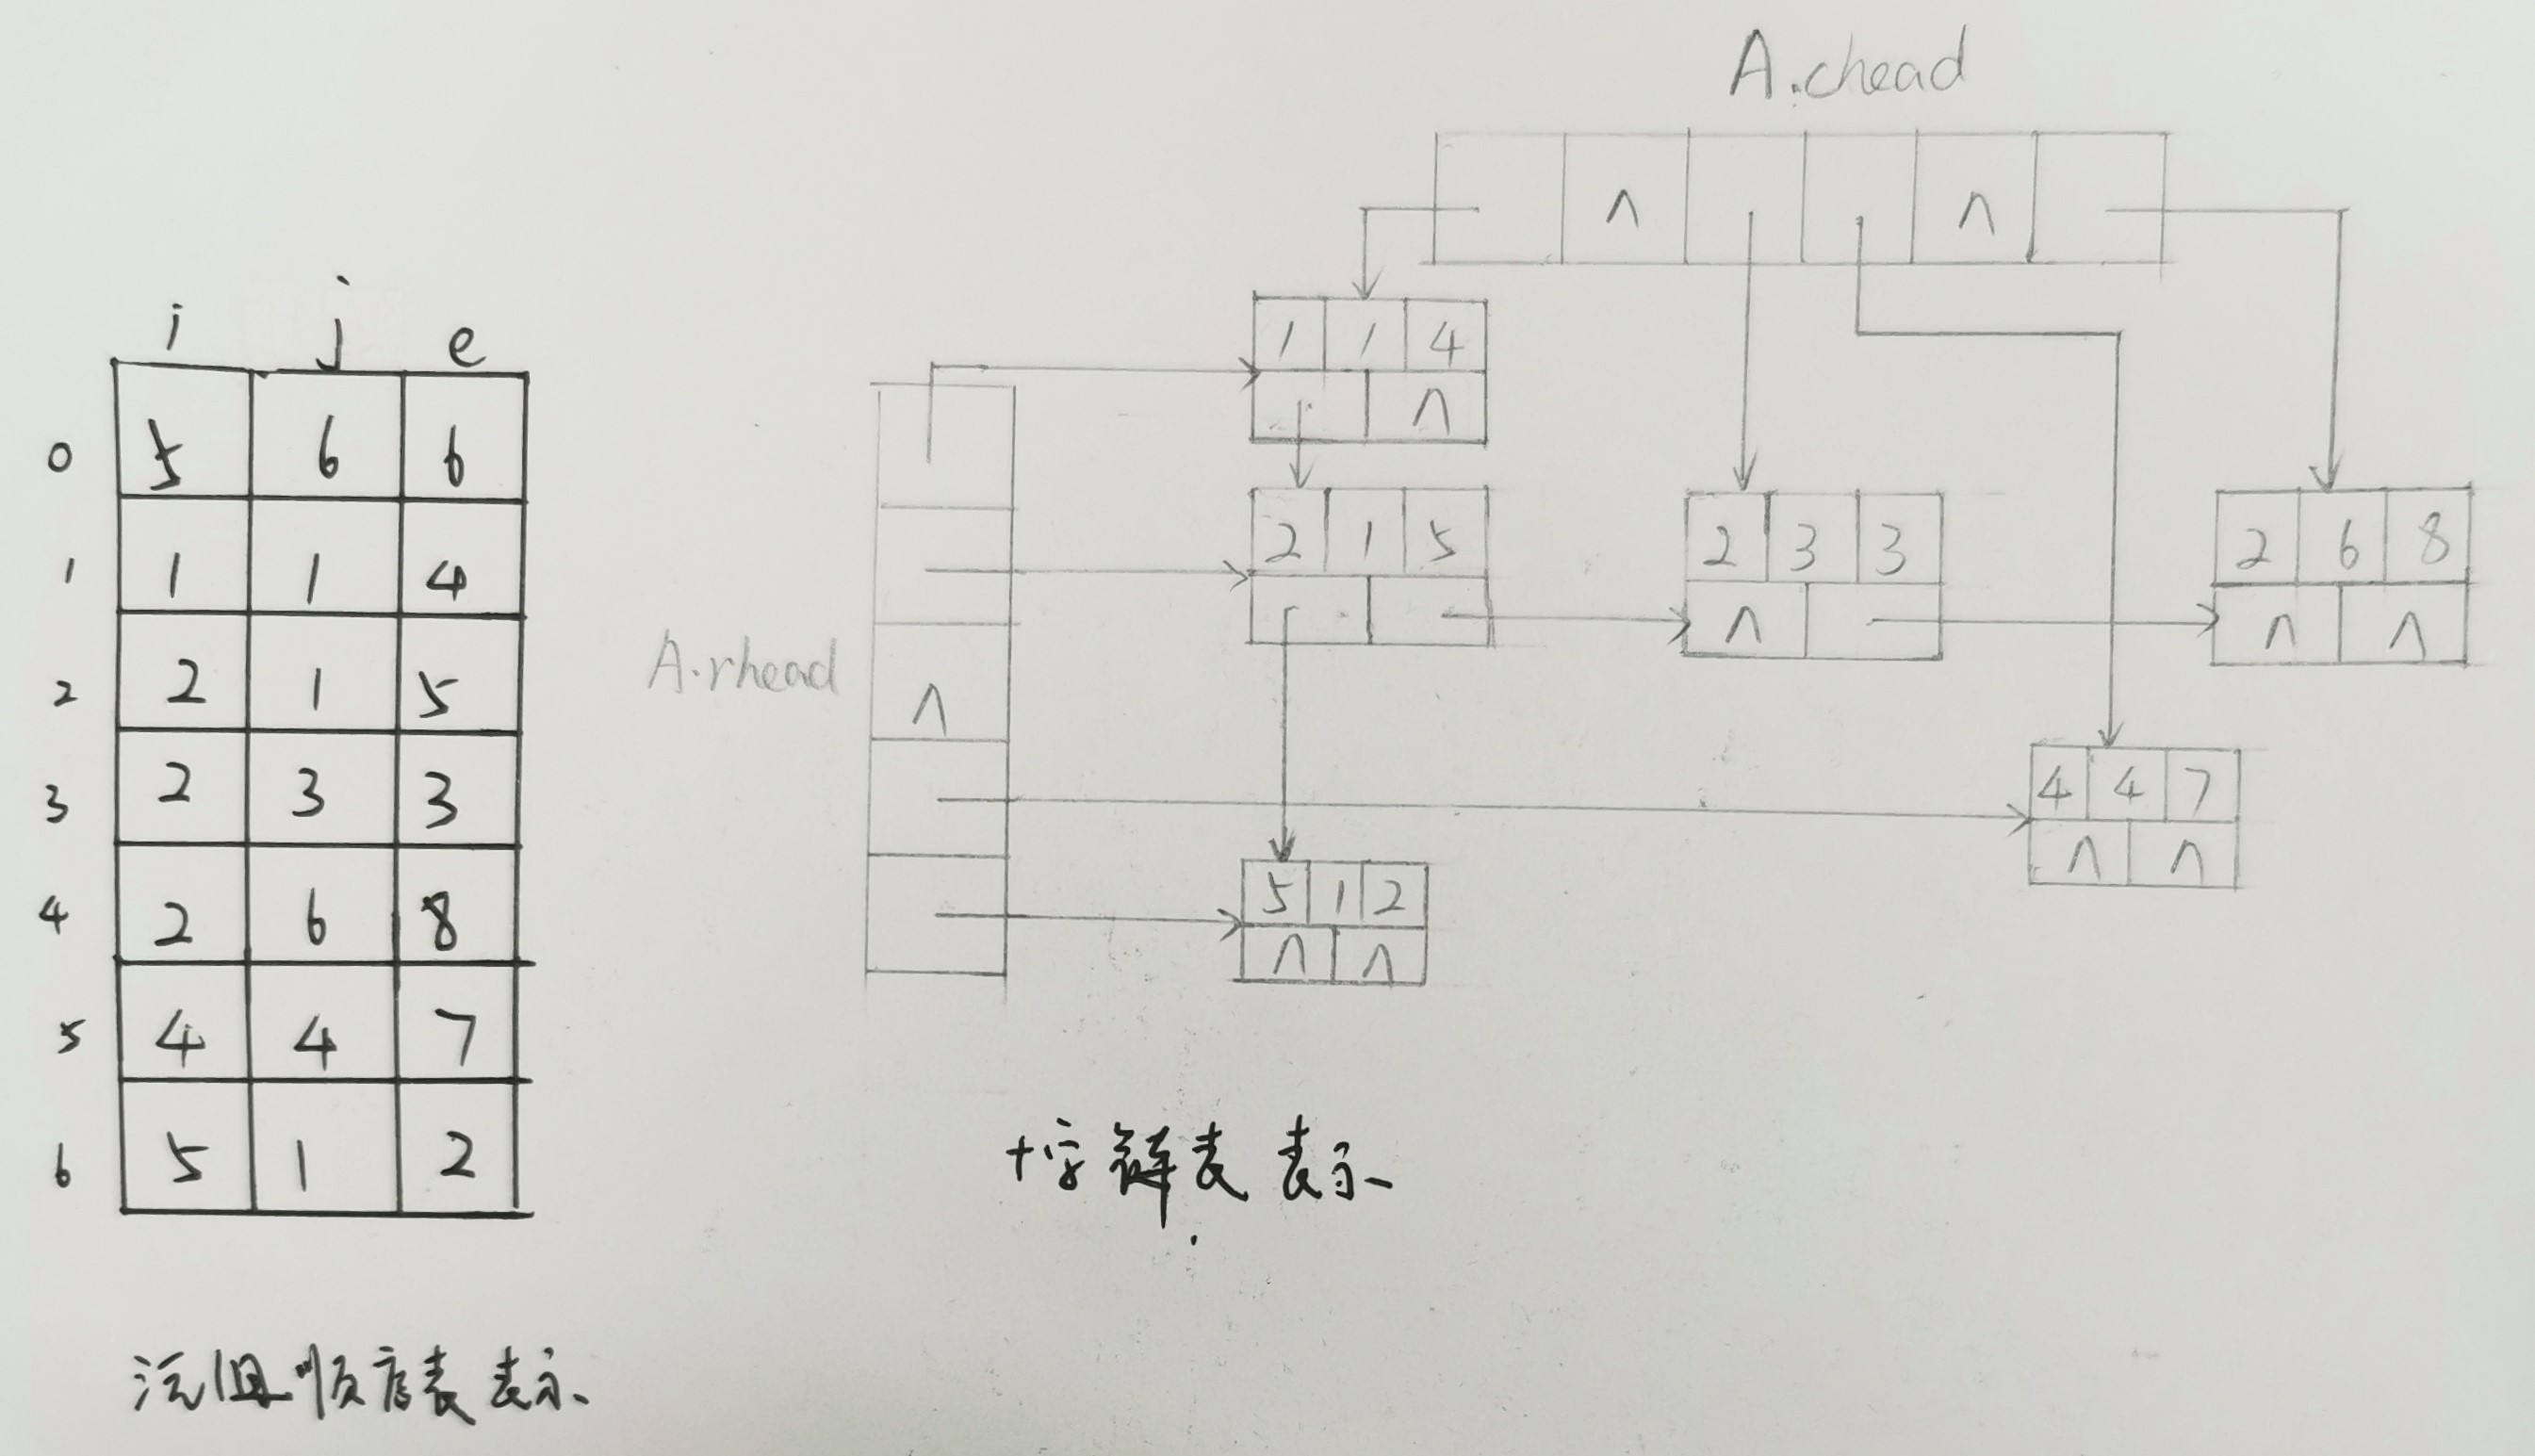 i j e
0 5 6 6
1 1 1 4
2 2 1 5
3 2 3 3
4 2 6 8
5 4 4 7
6 5 1 2
顺序表表示
A.chead
∧ ∧
1 1 4
∧
A.rhead
∧
2 1 5
2 3 3
∧
2 6 8
∧ ∧
4 4 7
∧ ∧
5 1 2
∧ ∧
十字链表表示